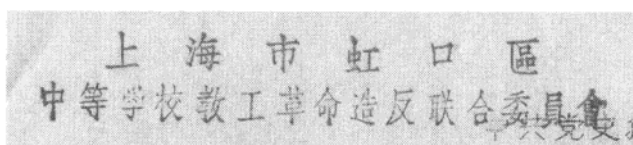 上海市虹口區
中等学校教工革命造反联合委員會
中共党史